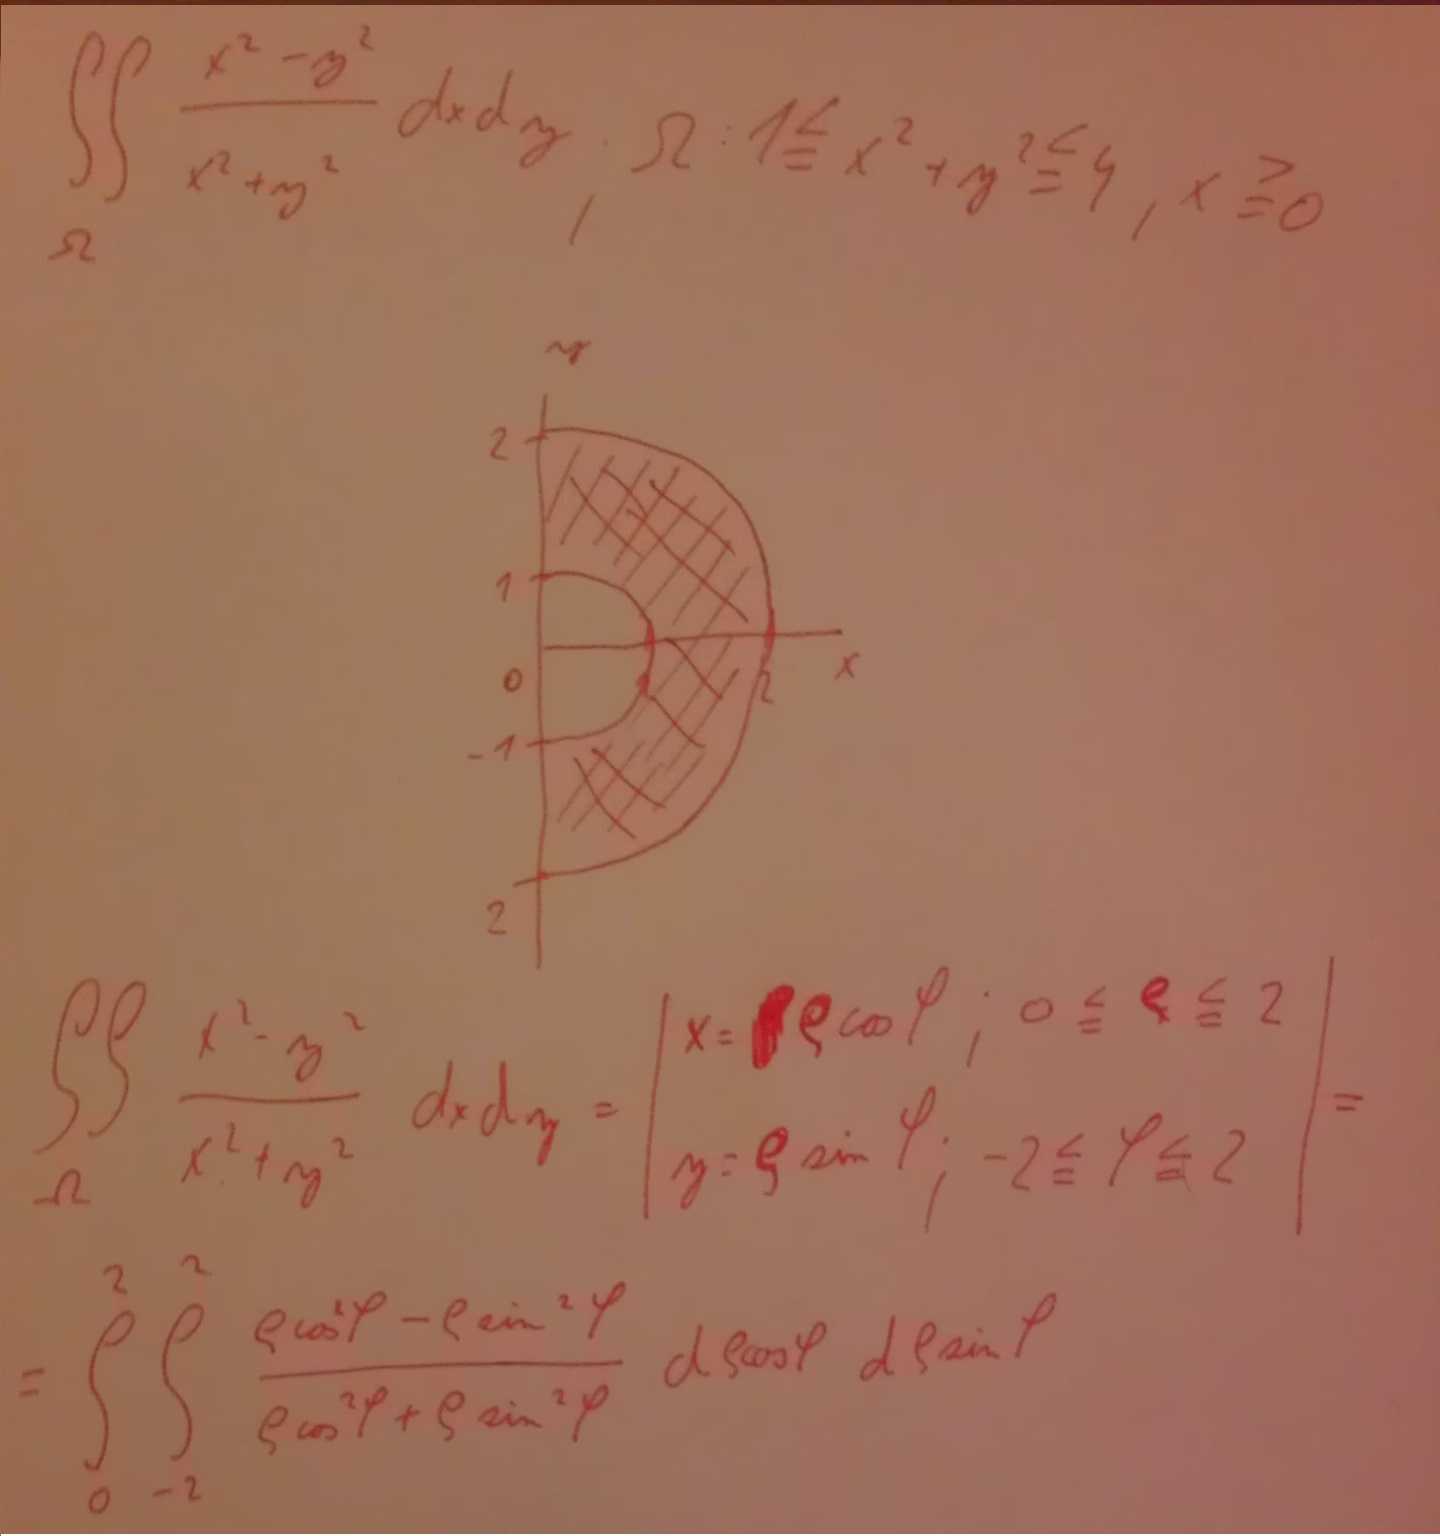 ∬ x² - y² / x² + y² dxdy, Ω: 1 ≦ x² + y² ≦ 4, x ≧ 0
Ω
y
2
1
0
x
2
-1
2
∬ x² - y² / x² + y² dxdy = | x = ρ cos φ ; 0 ≦ ρ ≦ 2
Ω
y = ρ sin φ ; -2 ≦ φ ≦ 2 | =
= ∫₀² ∫₋₂² ρ cos² φ - ρ sin² φ / ρ cos² φ + ρ sin² φ dρ cos φ dρ sin φ